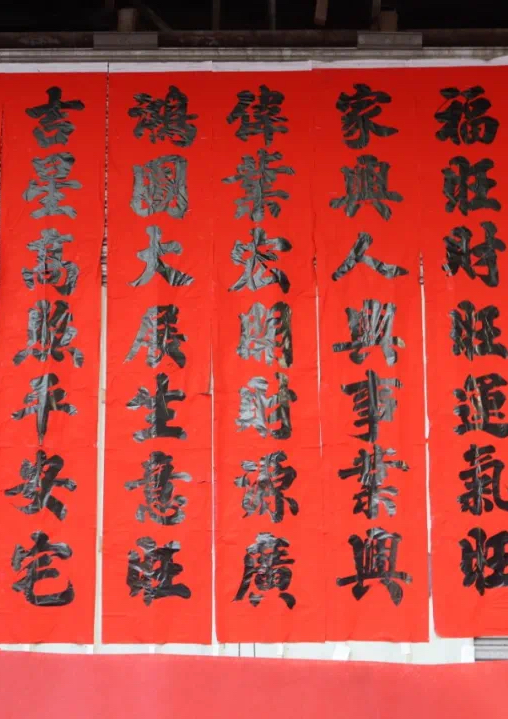 福旺財旺運氣旺
家興人興事業興
偉業宏開財源廣
鴻圖大展生意旺
吉星高照平安宅